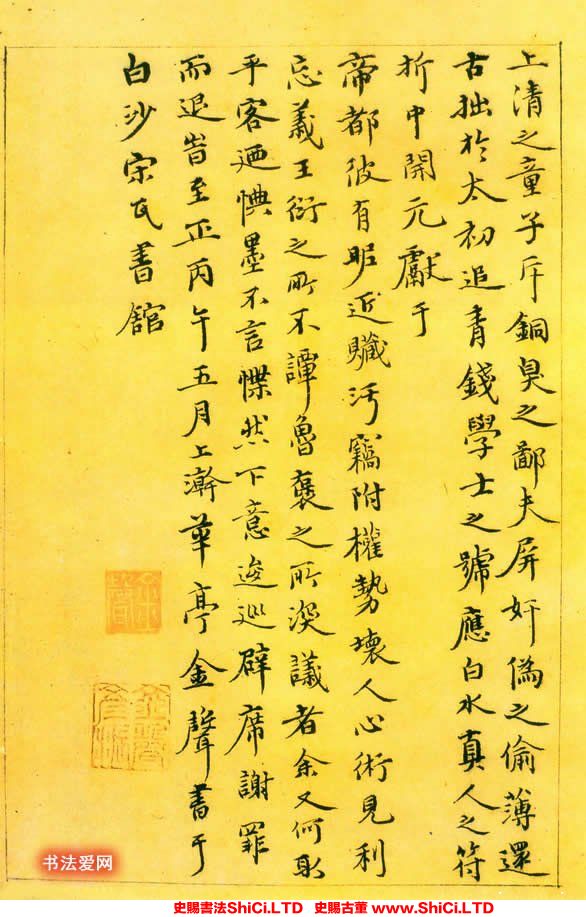 上清之童子斥銅臭之鄙夫屏奸偽之偷薄還
古拙於太初追青錢學士之號應白水真人之符
折中開元獻于
帝都彼有昵近贓汙竊附權勢壞人心術見利
忘義王衍之所不譚魯褒之所深議者余又何取
乎客迺懊墨不言憟然下意逡巡辟席謝罪
而退旹至正丙午五月上澣華亭金聲書于
白沙宋氏書館
书法爱网
史賜書法ShiCi.LTD 史賜古董 www.ShiCi.LTD